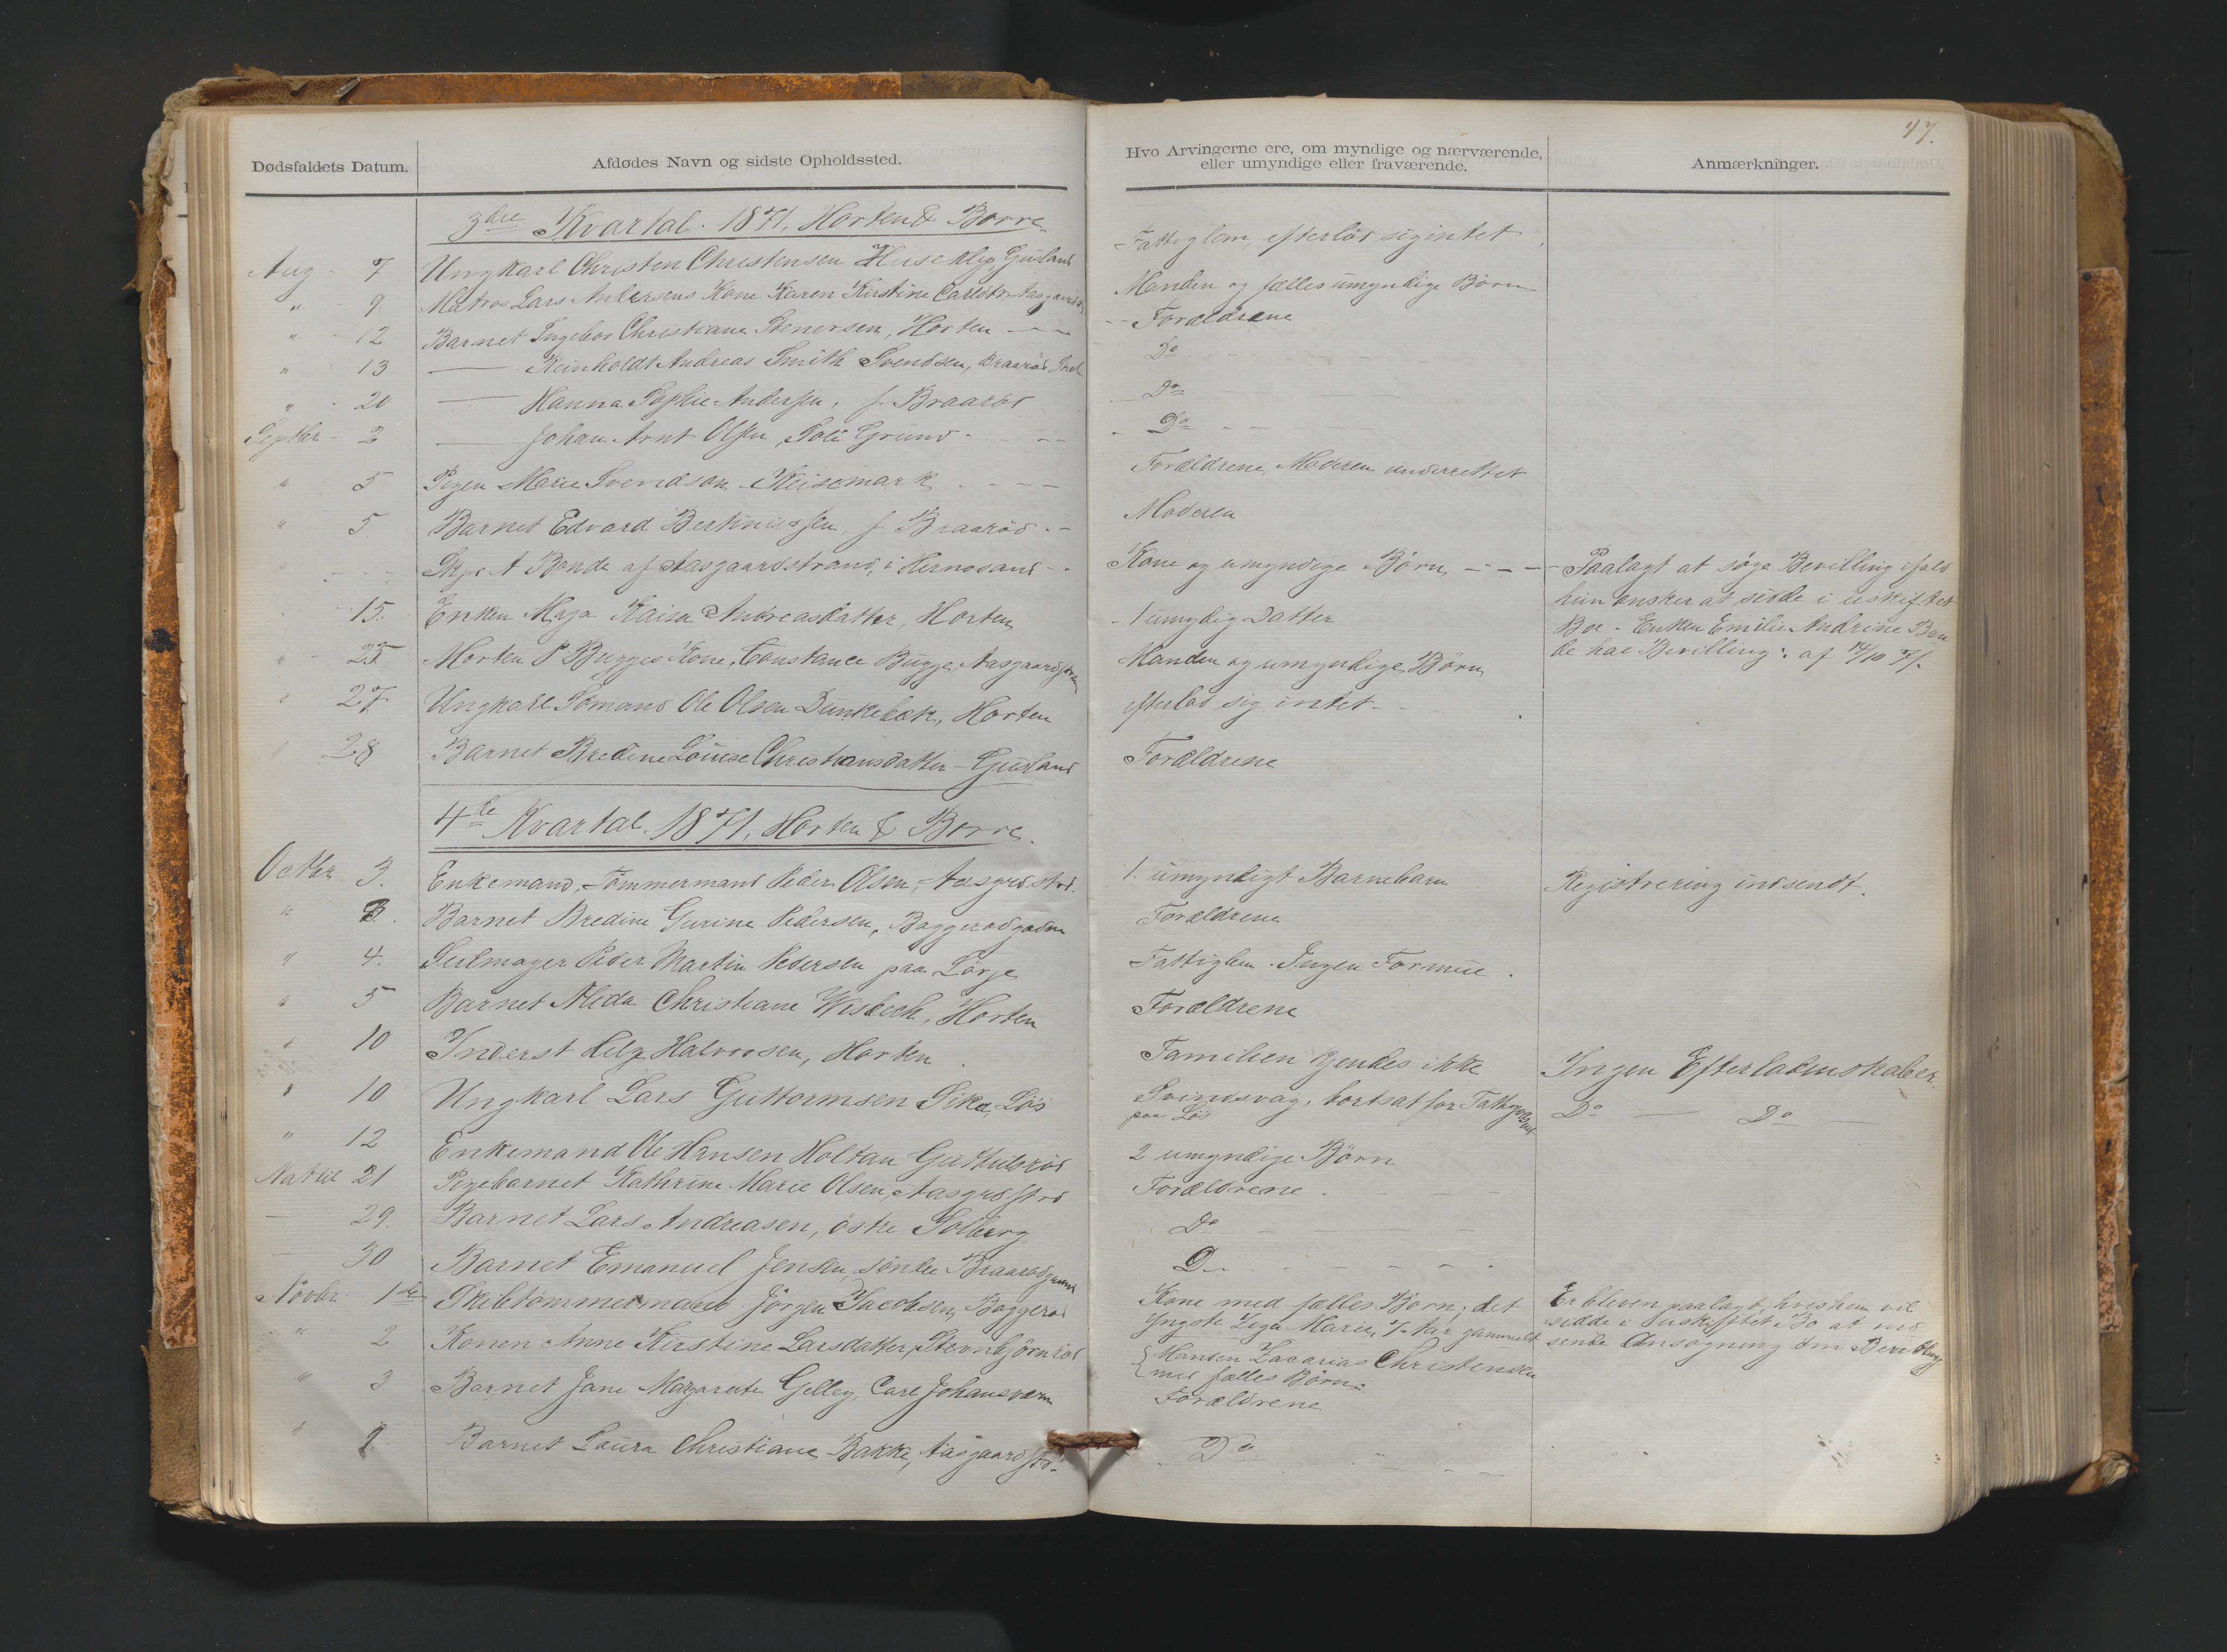 77.
Dødsfaldets Datum.
Afdødes Navn og sidste Opholdssted.
Hvo Arvingerne ere, om myndige og nærværende,
eller umyndige eller fraværende.
Anmærkninger.
3die Kvartal. 1871. Horten & Borre.
Aug. 7 Ungkarl Christen Christensen Gusland Fattiglem, efterlod sig intet
" 9. Matros Lars Andersens Kone Karen Kirstine Manden og fælles umyndige Børn
" 12 Barnet Ingebor Christiane Stenersen, Horten Forældrene
" 13 — Reinholdt Andreas Smith Svendsen, Braarød Do
" 20 — Hanna Sophie Andersen, s. Braarød Do
Septbr 2 — Johan Arnt Olsen, Grund Do
" 5 Pigen Marie Svendsen Keisemark Forældrene, Moderen underrettet
" 5 Barnet Edvard Bertiniussen, s. Braarød Moderen
" Skpr A Bonde af Aasgaardstrand, i Hernosand Kone og umyndige Børn Paalagt at søge Bevilling ifald
hun ønsker at sidde i uskiftet
15. Enken Maja Kaisa Andreasdatter, Horten 1 umyndig Datter
Bo. Enken Emilie Andrine Bon
de har Bevilling af 14/10 71.
" 25 Morten P Bugges Kone, Constance Bugge, Aasgaardstrand Manden og umyndige Børn
" 27 Ungkarl Sømand Ole Olsen Dunkebek, Horten efterlod sig intet
" 28 Barnet Bredine Louise Christiansdatter Gusland Forældrene
4de Kvartal. 1871, Horten & Borre.
Octbr 3. Enkemand, Tømmermand Peder Olsen, Aasgrd.strd. 1. umyndigt Barnebarn Registrering indsendt.
" 3. Barnet Bredine Gurine Pedersen, Baggerødgaden Forældrene
" 4. Seilmager Peder Martin Pedersen paa Lørge Fattiglem. Ingen Formue.
" 5 Barnet Alida Christiane Wisbech, Horten Forældrene
" 10 Inderst Helge Halvorsen, Horten Familien kjendes ikke Ingen Efterladenskaber.
" 10 Ungkarl Lars Guttormsen Løs Svindsvag, bortsat for Fattigvæsnet
paa Løs Do — Do —
" 12 Enkemand Ole Hansen Holtan 2 umyndige Børn
21 Pigebarnet Kathrine Marie Olsen, Aasgrd.strd Forældrene
— 29. Barnet Lars Andreasen, østre Solberg Do
30 Barnet Emanuel Jensen, søndre Braarødgrund Do
Novbr 1ste Skibtømmermand Jørgen Jacobsen, Baggerød Kone med fælles Børn, det
yngste Marie, 7 Aar gammelt
Er bleven paalagt, hvis hun vil
sidde i uskiftet Bo at ind
sende Ansøgning om Bevilling
" 2 Konen Anne Kirstine Larsdatter, Steenbjørnrød Manden Zacarias Christensen
med fælles Børn
" 3 Barnet Jane Margarete Gelley, Carl Johansværn Forældrene
" Barnet Laura Christiane Bakke, Aasgaardstr. Do